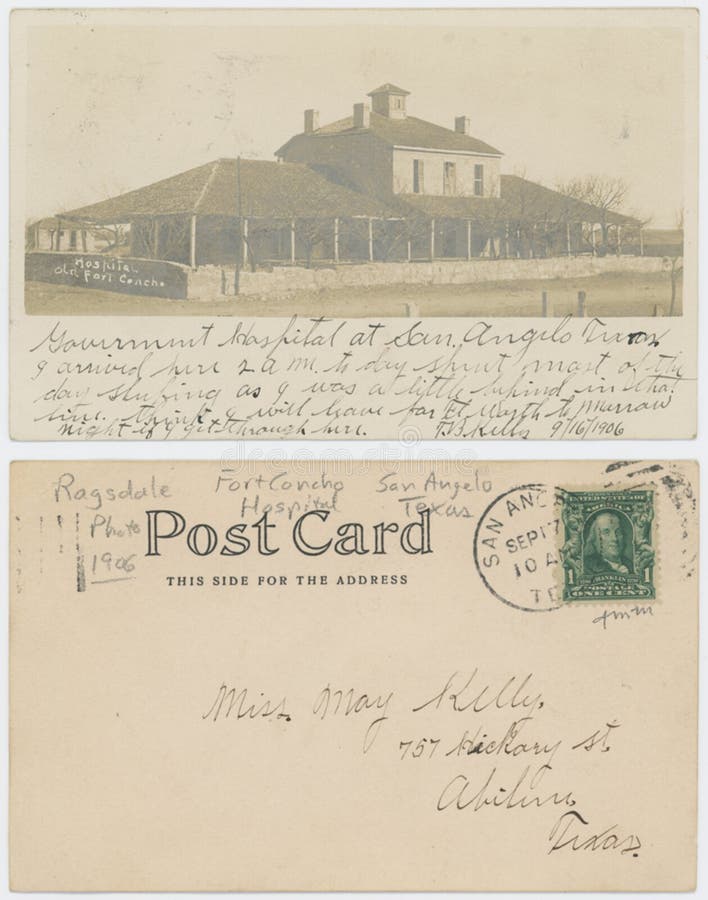 Hospital
Old Fort Concho
Government Hospital at San Angelo Texas
I arrived here 2 a m. to day spent most of the
day sleeping as I was a little behind in that
line. think I will leave for Ft. Worth to morrow
night if I get through here. T.B. Kelly 9/16/1906
Ragsdale Fort Concho San Angelo
Photo Hospital Texas
1906
Post Card
THIS SIDE FOR THE ADDRESS
SAN ANG
SEP 17
10 A
TE
UNITED STATES OF AMERICA
1 FRANKLIN 1
POSTAGE
ONE CENT
Miss. May Kelly.
757 Hickory st.
Abilene
Texas.
dreamstime